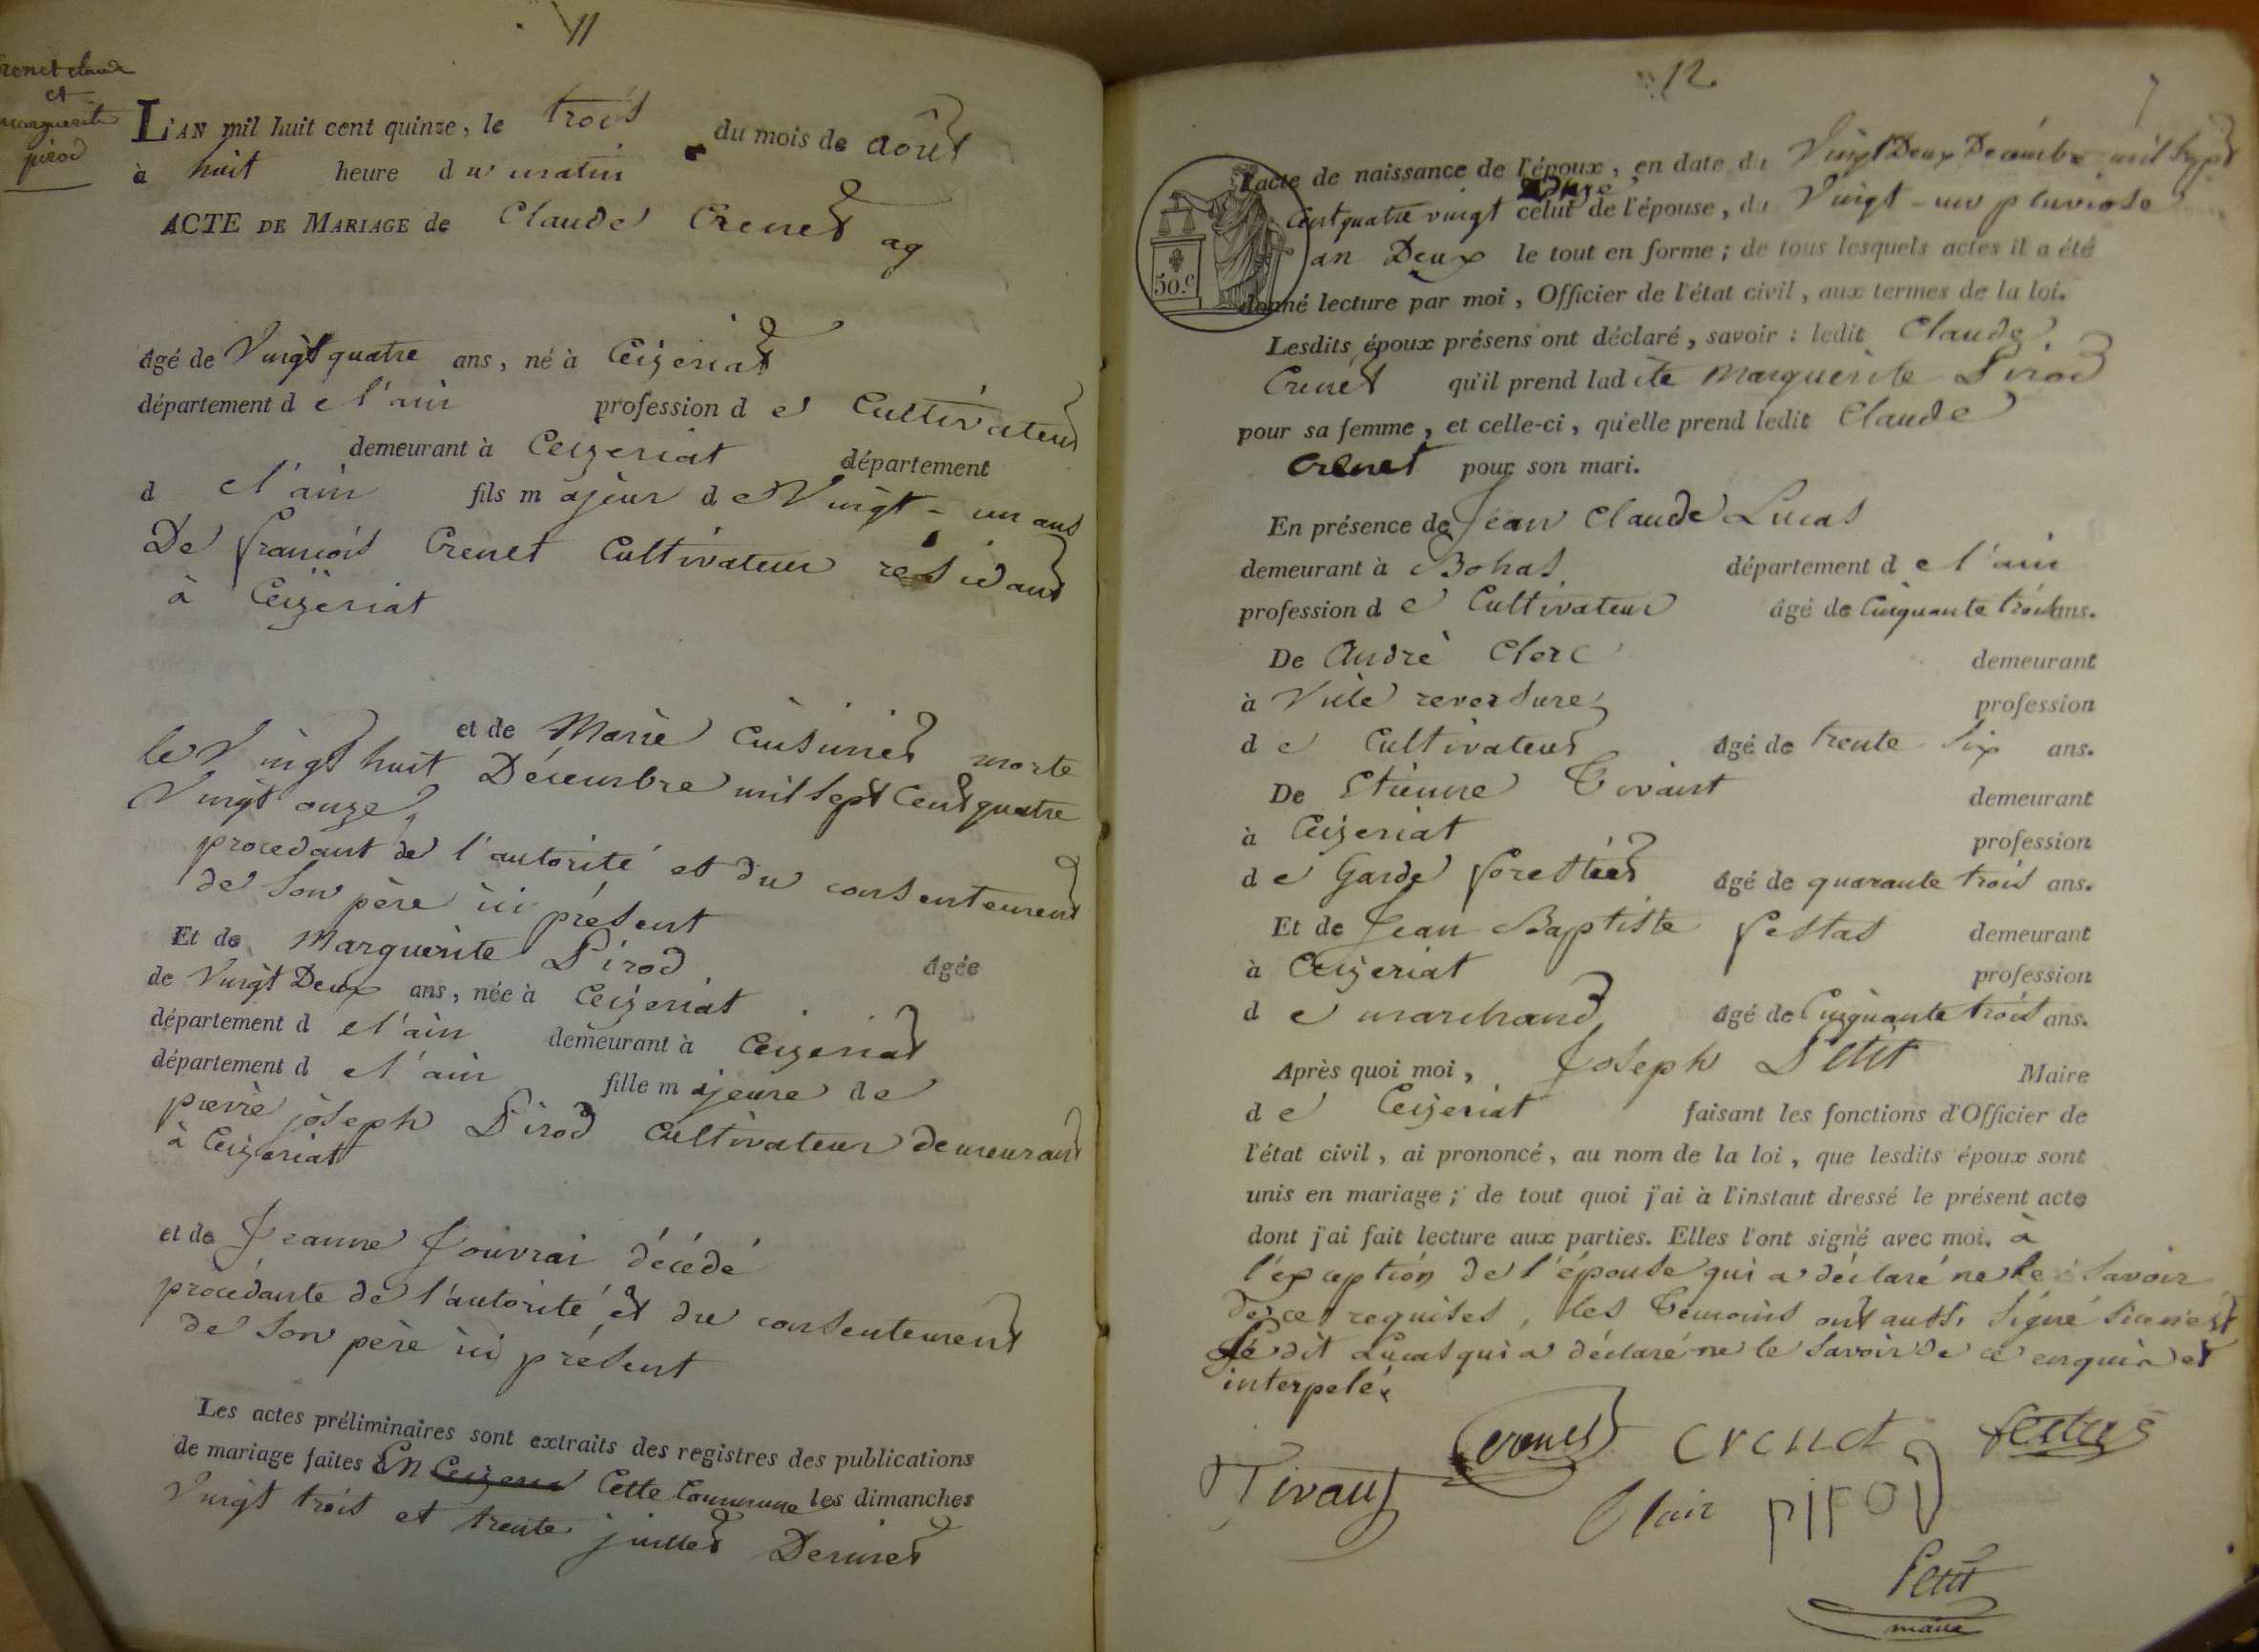 11
Crenet claude
et
marguerite
pirod
L'AN mil huit cent quinze, le trois du mois de août
à huit heure du matin
ACTE DE MARIAGE de Claude Crenet ag
âgé de Vingt quatre ans, né à Ceizeriat
département de l'ain profession de Cultivateur
demeurant à Ceizeriat département
de l'ain fils majeur de Vingt-un ans
De francois Crenet Cultivateur résidant
à Ceizeriat
et de Marie Cuisinier morte
le Vingt huit Décembre mil sept Cent quatre
Vingt onze
procedant de l'autorité et du consentement
de son père ici présent
Et de Marguerite Pirod âgée
de Vingt Deux ans, née à Ceizeriat
département de l'ain demeurant à Ceizeriat
département de l'ain fille majeure de
pierre joseph Pirod Cultivateur demeurant
à Ceizeriat
et de Jeanne Jouvrai décédé
procédante de l'autorité et du consentement
de son père ici présent
Les actes préliminaires sont extraits des registres des publications
de mariage faites En Cette Commune les dimanches
Vingt trois et trente juillet Dernier
12
l'acte de naissance de l'époux, en date du Vingt Deux Décembre mil sept
Cent quatre vingt celui de l'épouse, du Vingt-un pluviose
an Deux le tout en forme; de tous lesquels actes il a été
donné lecture par moi, Officier de l'état civil, aux termes de la loi.
50.c
Lesdits époux présens ont déclaré, savoir: ledit Claude
Crenet qu'il prend ladite Marguerite Pirod
pour sa femme, et celle-ci, qu'elle prend ledit Claude
Crenet pour son mari.
En présence de Jean Claude Lucas
demeurant à Bohas département de l'ain
profession de Cultivateur âgé de Cinquante trois ans.
De André Clerc demeurant
à Ville reversure profession
de Cultivateur âgé de trente six ans.
De Etienne Tivant demeurant
à Ceizeriat profession
de Garde forestier âgé de quarante trois ans.
Et de Jean Baptiste festas demeurant
à Ceizeriat profession
de marchand âgé de Cinquante trois ans.
Après quoi moi, Joseph Petit Maire
de Ceizeriat faisant les fonctions d'Officier de
l'état civil, ai prononcé, au nom de la loi, que lesdits époux sont
unis en mariage; de tout quoi j'ai à l'instant dressé le présent acte
dont j'ai fait lecture aux parties. Elles l'ont signé avec moi. à
l'exception de l'épouse qui a déclaré ne le savoir
de ce requises, les témoins ont aussi signé si ce n'est
Le dit Lucas qui a déclaré ne le savoir de ce enquis et
interpelé.
Crenet crenet festas
Tivant Clair pirod
Petit
maire